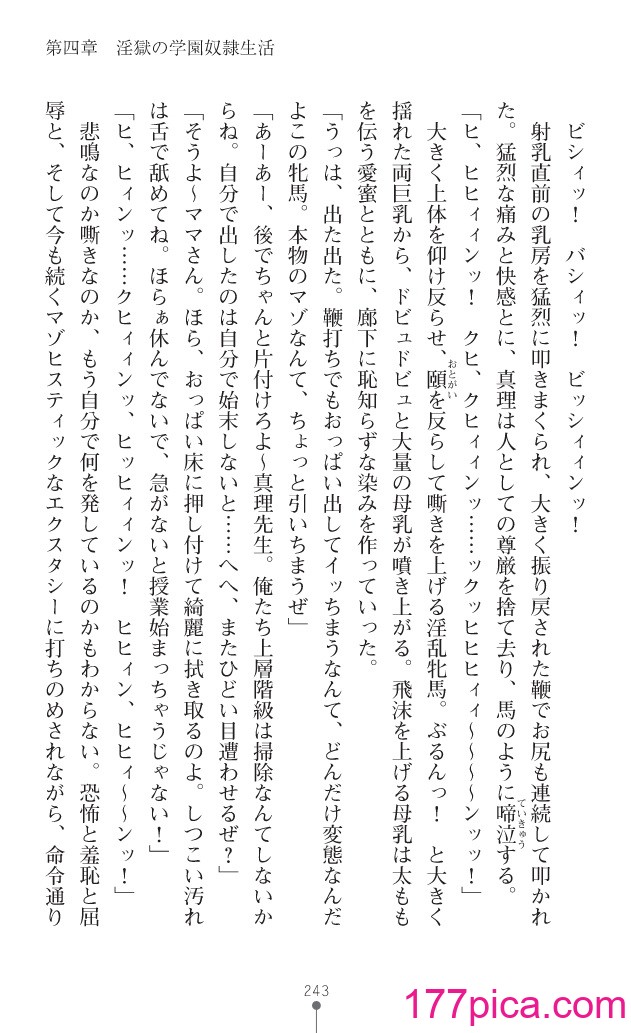 第四章　淫獄の学園奴隷生活
ビシィッ！　バシィッ！　ビッシィィンッ！
射乳直前の乳房を猛烈に叩きまくられ、大きく振り戻された鞭でお尻も連続して叩かれ
た。猛烈な痛みと快感とに、真理は人としての尊厳を捨て去り、馬のように啼泣する。
ていきゅう
「ヒ、ヒヒィィンッ！　クヒ、クヒィィンッ……ックッヒヒヒィィ～～～～ンッッ！」
大きく上体を仰け反らせ、頤を反らして嘶きを上げる淫乱牝馬。ぶるんっ！　と大きく
おとがい
揺れた両巨乳から、ドビュドビュと大量の母乳が噴き上がる。飛沫を上げる母乳は太もも
を伝う愛蜜とともに、廊下に恥知らずな染みを作っていった。
「うっは、出た出た。鞭打ちでもおっぱい出してイッちまうなんて、どんだけ変態なんだ
よこの牝馬。本物のマゾなんて、ちょっと引いちまうぜ」
「あーあー、後でちゃんと片付けろよ～真理先生。俺たち上層階級は掃除なんてしないか
らね。自分で出したのは自分で始末しないと……へへ、またひどい目遭わせるぜ？」
「そうよ～ママさん。ほら、おっぱい床に押し付けて綺麗に拭き取るのよ。しつこい汚れ
は舌で舐めてね。ほらぁ休んでないで、急がないと授業始まっちゃうじゃない！」
「ヒ、ヒィンッ……クヒィィンッ、ヒッヒィィンッ！　ヒヒィン、ヒヒィ～～ンッ！」
悲鳴なのか嘶きなのか、もう自分で何を発しているのかもわからない。恐怖と羞恥と屈
辱と、そして今も続くマゾヒスティックなエクスタシーに打ちのめされながら、命令通り
243
177pica.com